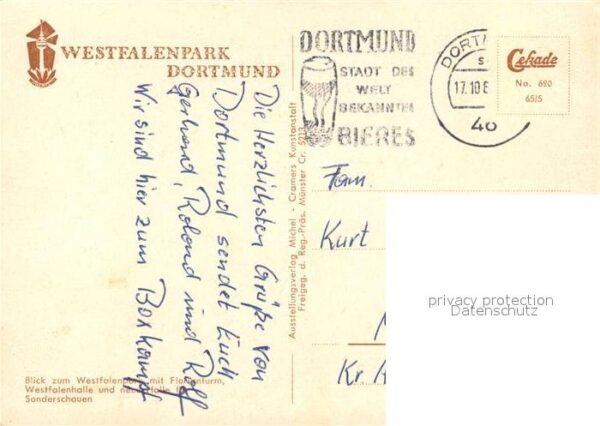 WESTFALENPARK
DORTMUND
Die Herzlichsten Grüße von
Dortmund sendet Euch
Gerhard, Roland und Rolf
Wir sind hier zum Boxkampf
Blick zum Westfalenpark mit Florianturm,
Westfalenhalle und neue Halle für
Sonderschauen
Ausstellungsverlag Michel - Cramers Kunstanstalt
Freigeg. d. Reg.-Präs. Münster Cr. 5213
DORTMUND
STADT DES
WELT
BEKANNTEN
BIERES
DORT
17.10.6
46
Cekade
No. 620
65/5
Fam.
Kurt
Kr
privacy protection
Datenschutz